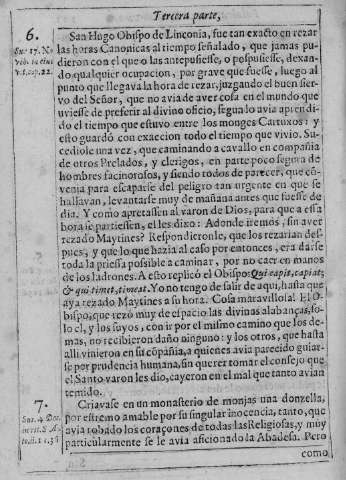 Tercera parte,
6.
Sur. 17. No
vẽb. in eius
v. c. cap. 22.
San Hugo Obispo de Linconia, fue tan exacto en rezar
las horas Canonicas al tiempo señalado, que jamas pu-
dieron con el que o las antepusiesse, o pospusiesse, dexan-
do qualquier ocupacion, por grave que fuesse, luego al
punto que llegava la hora de rezar, juzgando el buen sier-
vo del Señor, que no avia de aver cosa en el mundo que
uviesse de preferir al divino oficio, segun lo avia aprendi-
do el tiempo que estuvo entre los monges Cartuxos: y
esto guardó con exaccion todo el tiempo que vivio. Su-
cediole una vez, que caminando a cavallo en compañia
de otros Prelados, y clerigos, en parte poco segura de
hombres facinorosos, y siendo todos de parecer, que cõ-
venia para escaparse del peligro tan urgente en que se
hallavan, levantarse muy de mañana antes que fuesse de
dia. Y como apretassen al varon de Dios, para que a essa
hora se partiessen, el les dixo: Adonde iremos, sin aver
rezado Maytines? Respondieronle, que los rezarian des-
pues, y que lo que hazia al caso por entonces, era darse
toda la priessa possible a caminar, por no caer en manos
de los ladrones. A esto replicó el Obispo: Qui capit, capiat;
& qui timet, timeat. Yo no tengo de salir de aqui, hasta que
aya rezado Maytines a su hora. Cosa maravillosa! El O-
bispo, que rezó muy de espacio las divinas alabanças, so-
lo el, y los suyos, con ir por el mismo camino que los de-
mas, no recibieron daño ninguno: y los otros, que hasta
alli vinieron en su cõpañia, a quienes avia parecido guiar-
se por prudencia humana, sin querer tomar el consejo que
el Santo varon les dio, cayeron en el mal que tanto avian
temido.
7.
Sur. 4. Dec.
Criavase en un monasterio de monjas una donzella,
por estremo amable por su singular inocencia, tanto, que
avia robado los coraçones de todas las Religiosas, y muy
particularmente se le avia aficionado la Abadesa. Pero
como